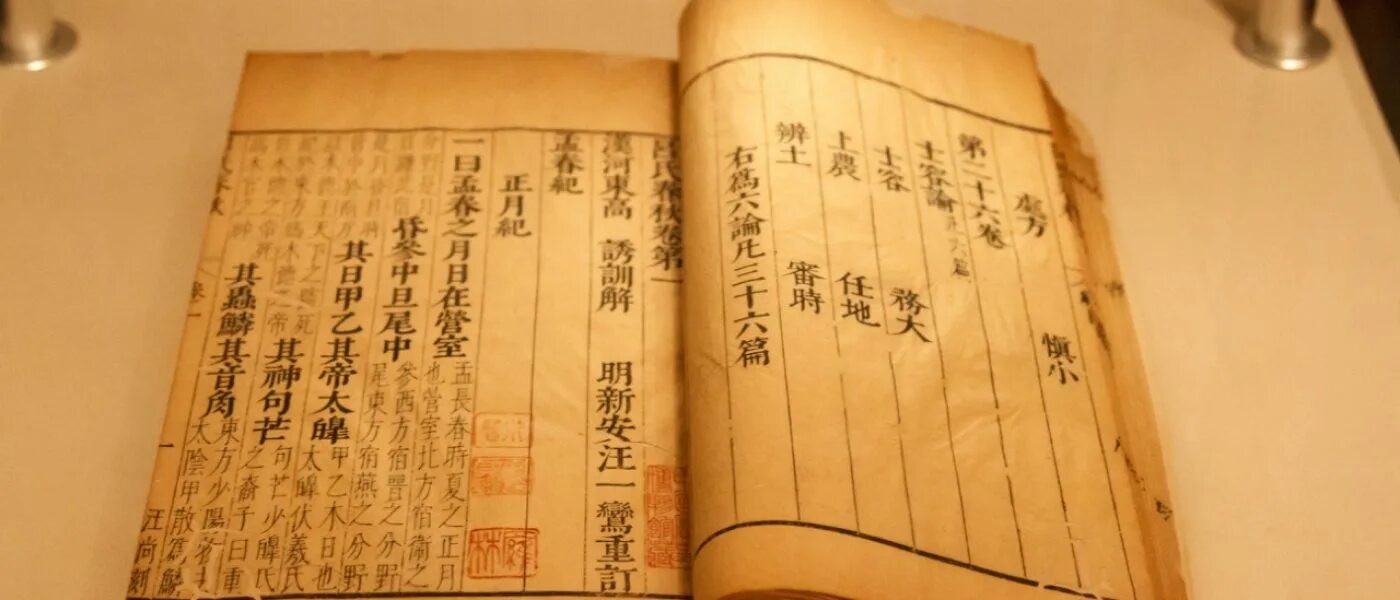 處方 愼小
第二十六卷
士容論凡六篇
士容 務大
上農 任地
辨土 審時
右爲六論凡三十六篇
呂氏春秋卷第一
漢河東高 誘訓解 明新安汪一鸞重訂
孟春紀
正月紀
一曰孟春之月日在營室孟長春時夏之正月也營室北方宿衛之
分野是月昏參中旦尾中參西方宿晉之分野尾東方宿燕之分野
其日甲乙其帝太皞甲乙木日也太皞伏羲氏
天下之號死木德之帝其神句芒句芒少皞氏之裔子曰重
木德之帝死木官之神其蟲鱗其音角東方少陽物太陰甲散爲鱗
汪尚刻